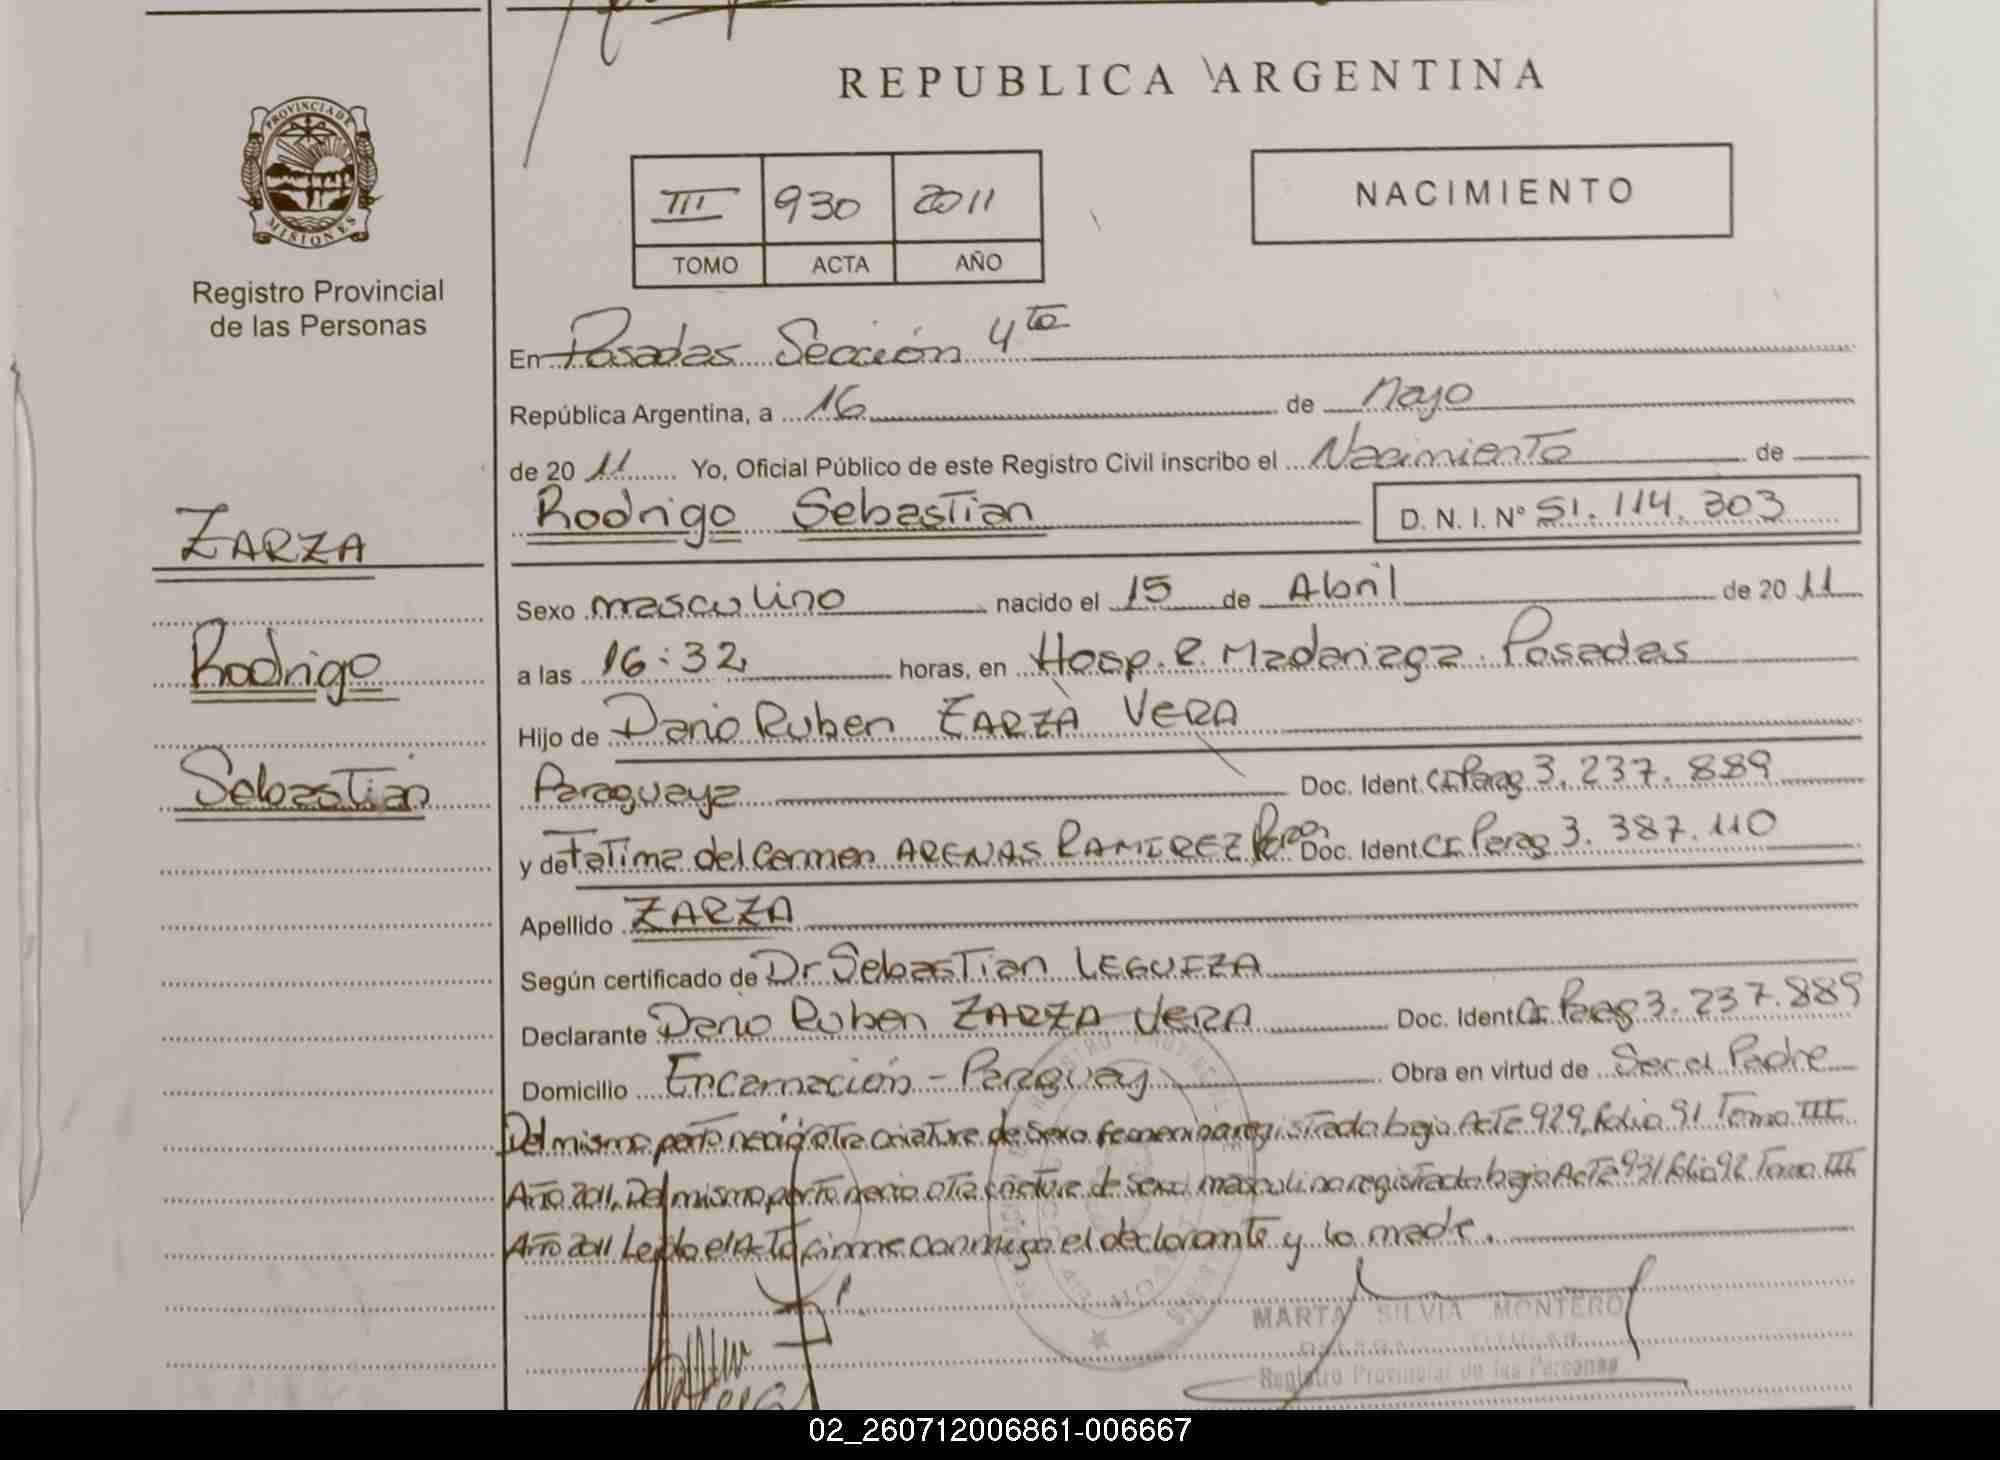 REPUBLICA ARGENTINA
PROVINCIA DE MISIONES
Registro Provincial
de las Personas
III 930 2011
TOMO ACTA AÑO
NACIMIENTO
En Posadas Sección 4ta
República Argentina, a 16 de Mayo
de 2011 Yo, Oficial Público de este Registro Civil inscribo el Nacimiento de
Rodrigo Sebastian D. N. I. Nº 51.114.303
ZARZA
Rodrigo
Sebastian
Sexo masculino nacido el 15 de Abril de 2011
a las 16:32 horas, en Hosp. R. Madariaga Posadas
Hijo de Dario Ruben ZARZA VERA
Paraguaya Doc. Ident. CI Parag 3.237.889
y de Fatima del Carmen ARENAS RAMIREZ Doc. Ident. CI Parag 3.387.110
Apellido ZARZA
Según certificado de Dr Sebastian LEGUIZA
Declarante Dario Ruben ZARZA VERA Doc. Ident. CI Parag 3.237.889
Domicilio Encarnación - Paraguay Obra en virtud de Ser el Padre
Del mismo parto nació otra criatura de sexo femenino registrada bajo Acta 929, Folio 91 Tomo III
Año 2011, Del mismo parto nacio otra criatura de sexo masculino registrada bajo Acta 931 folio 92 Tomo III
Año 2011 Leida el Acta firma conmigo el declarante y la madre.
MARTA SILVIA MONTERO
Registro Provincial de las Personas
02_260712006861-006667